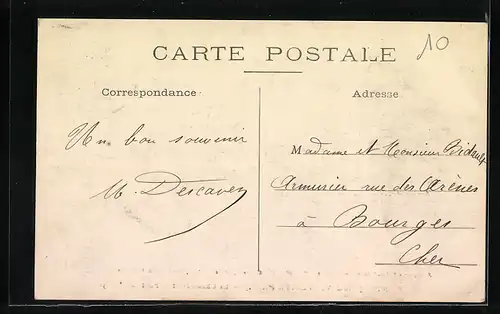 10
CARTE POSTALE
Correspondance
Adresse
Un bon souvenir
M. Descaven
Madame et Monsieur Bidault
Armurier rue des Arènes
à Bourges
Cher